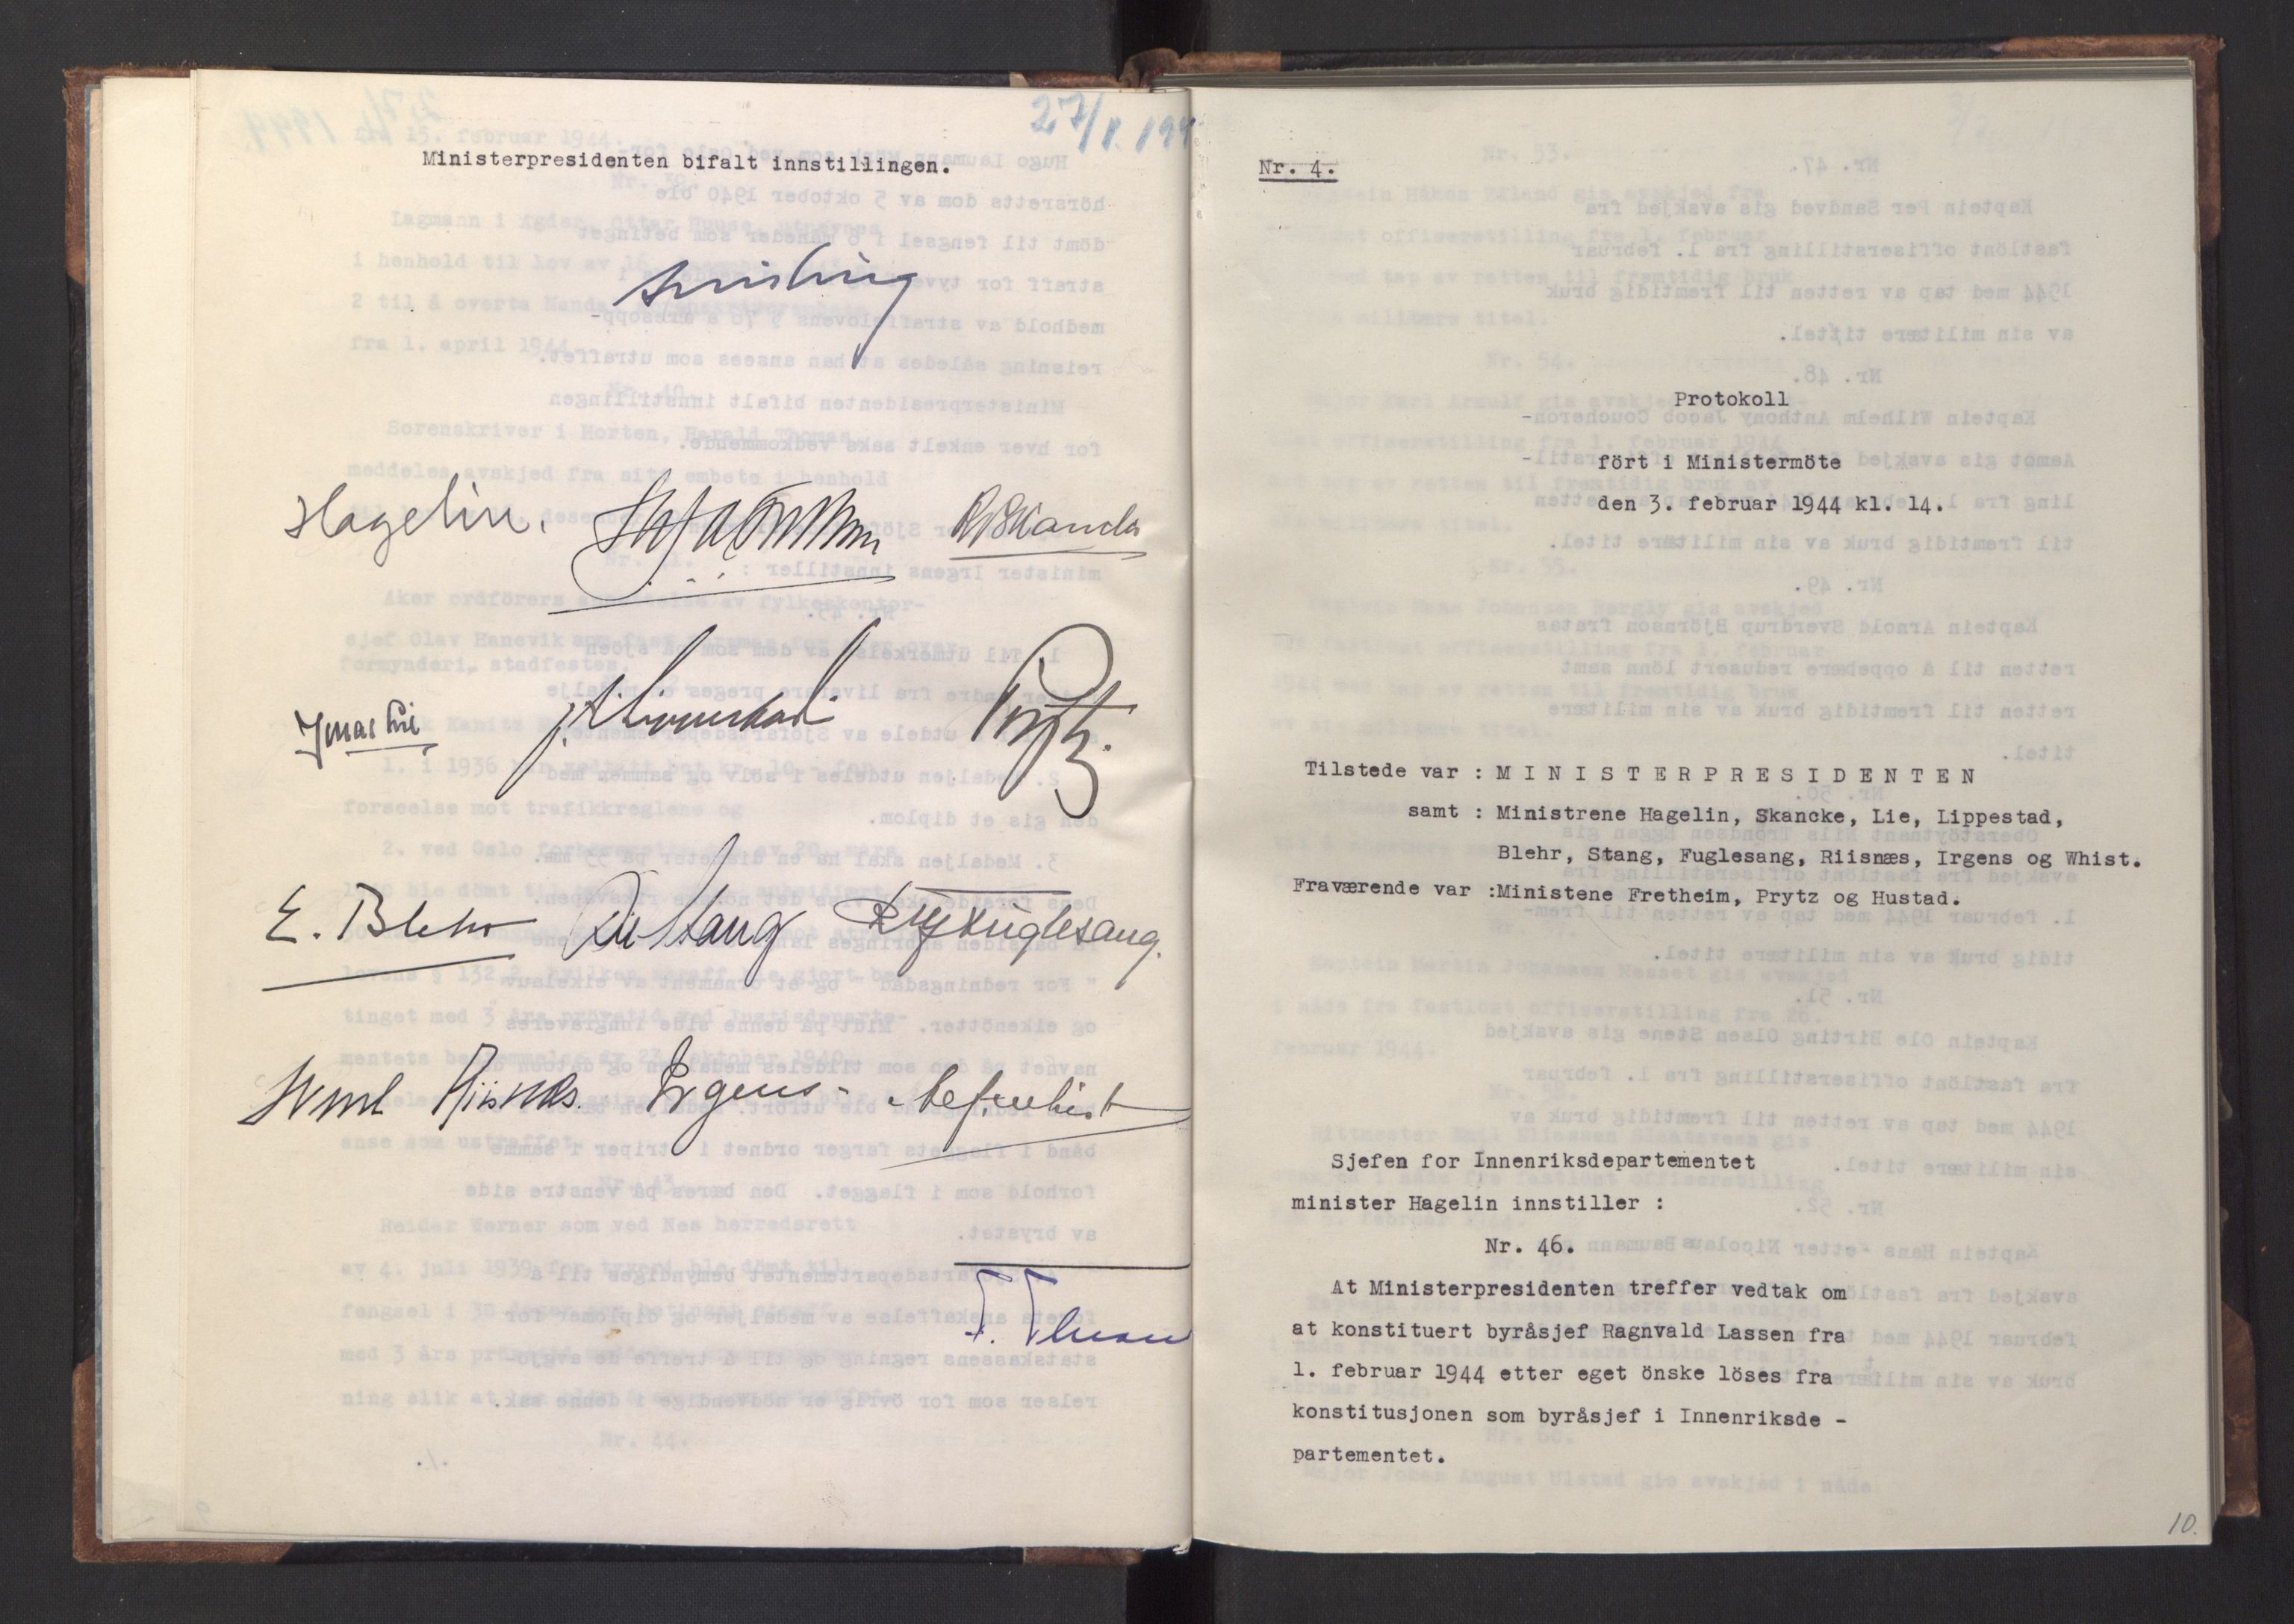 27/1. 194
Ministerpresidenten bifalt innstillingen.
Quisling
Hagelin.
R Skancke
Jonas Lie
J Lippestad
Prytz.
E. Blehr
Stang
Fuglesang.
Sverre Riisnæs.
Irgens
Whist
Nr. 4.
Protokoll
fört i Ministermöte
den 3. februar 1944 kl. 14.
Tilstede var : M I N I S T E R P R E S I D E N T E N
samt : Ministrene Hagelin, Skancke, Lie, Lippestad,
Blehr, Stang, Fuglesang, Riisnæs, Irgens og Whist.
Fraværende var :Ministene Fretheim, Prytz og Hustad.
Sjefen for Innenriksdepartementet
minister Hagelin innstiller :
Nr. 46.
At Ministerpresidenten treffer vedtak om
at konstituert byråsjef Ragnvald Lassen fra
1. februar 1944 etter eget önske löses fra
konstitusjonen som byråsjef i Innenriksde -
partementet.
10.